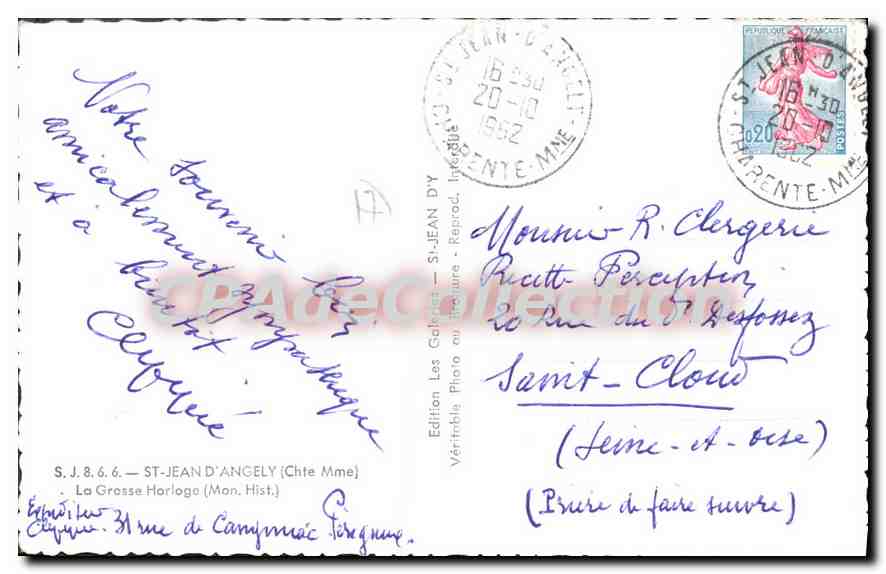 ST JEAN-D'ANGELY
16 H 30
20-10
1962
CHARENTE-Mme
REPUBLIQUE FRANCAISE
0,20
POSTES
ST JEAN D'ANGELY
16 H 30
20-10
1962
CHARENTE-Mme
Notre souvenir bien
amicalement sympathique
et à bientôt
Monsieur R. Clergerie
Recette Perception
20 Rue du Dr Desfossez
Saint-Cloud
(Seine-et-Oise)
(Prière de faire suivre)
CPAdeCollection
Edition Les Galeries — St-JEAN D'Y
Véritable Photo au Bromure - Reprod. Interdite
S. J. 8. 6. 6. — ST-JEAN D'ANGELY (Chte Mme)
La Grosse Horloge (Mon. Hist.)
Expéditeur
31 rue de Périgueux.